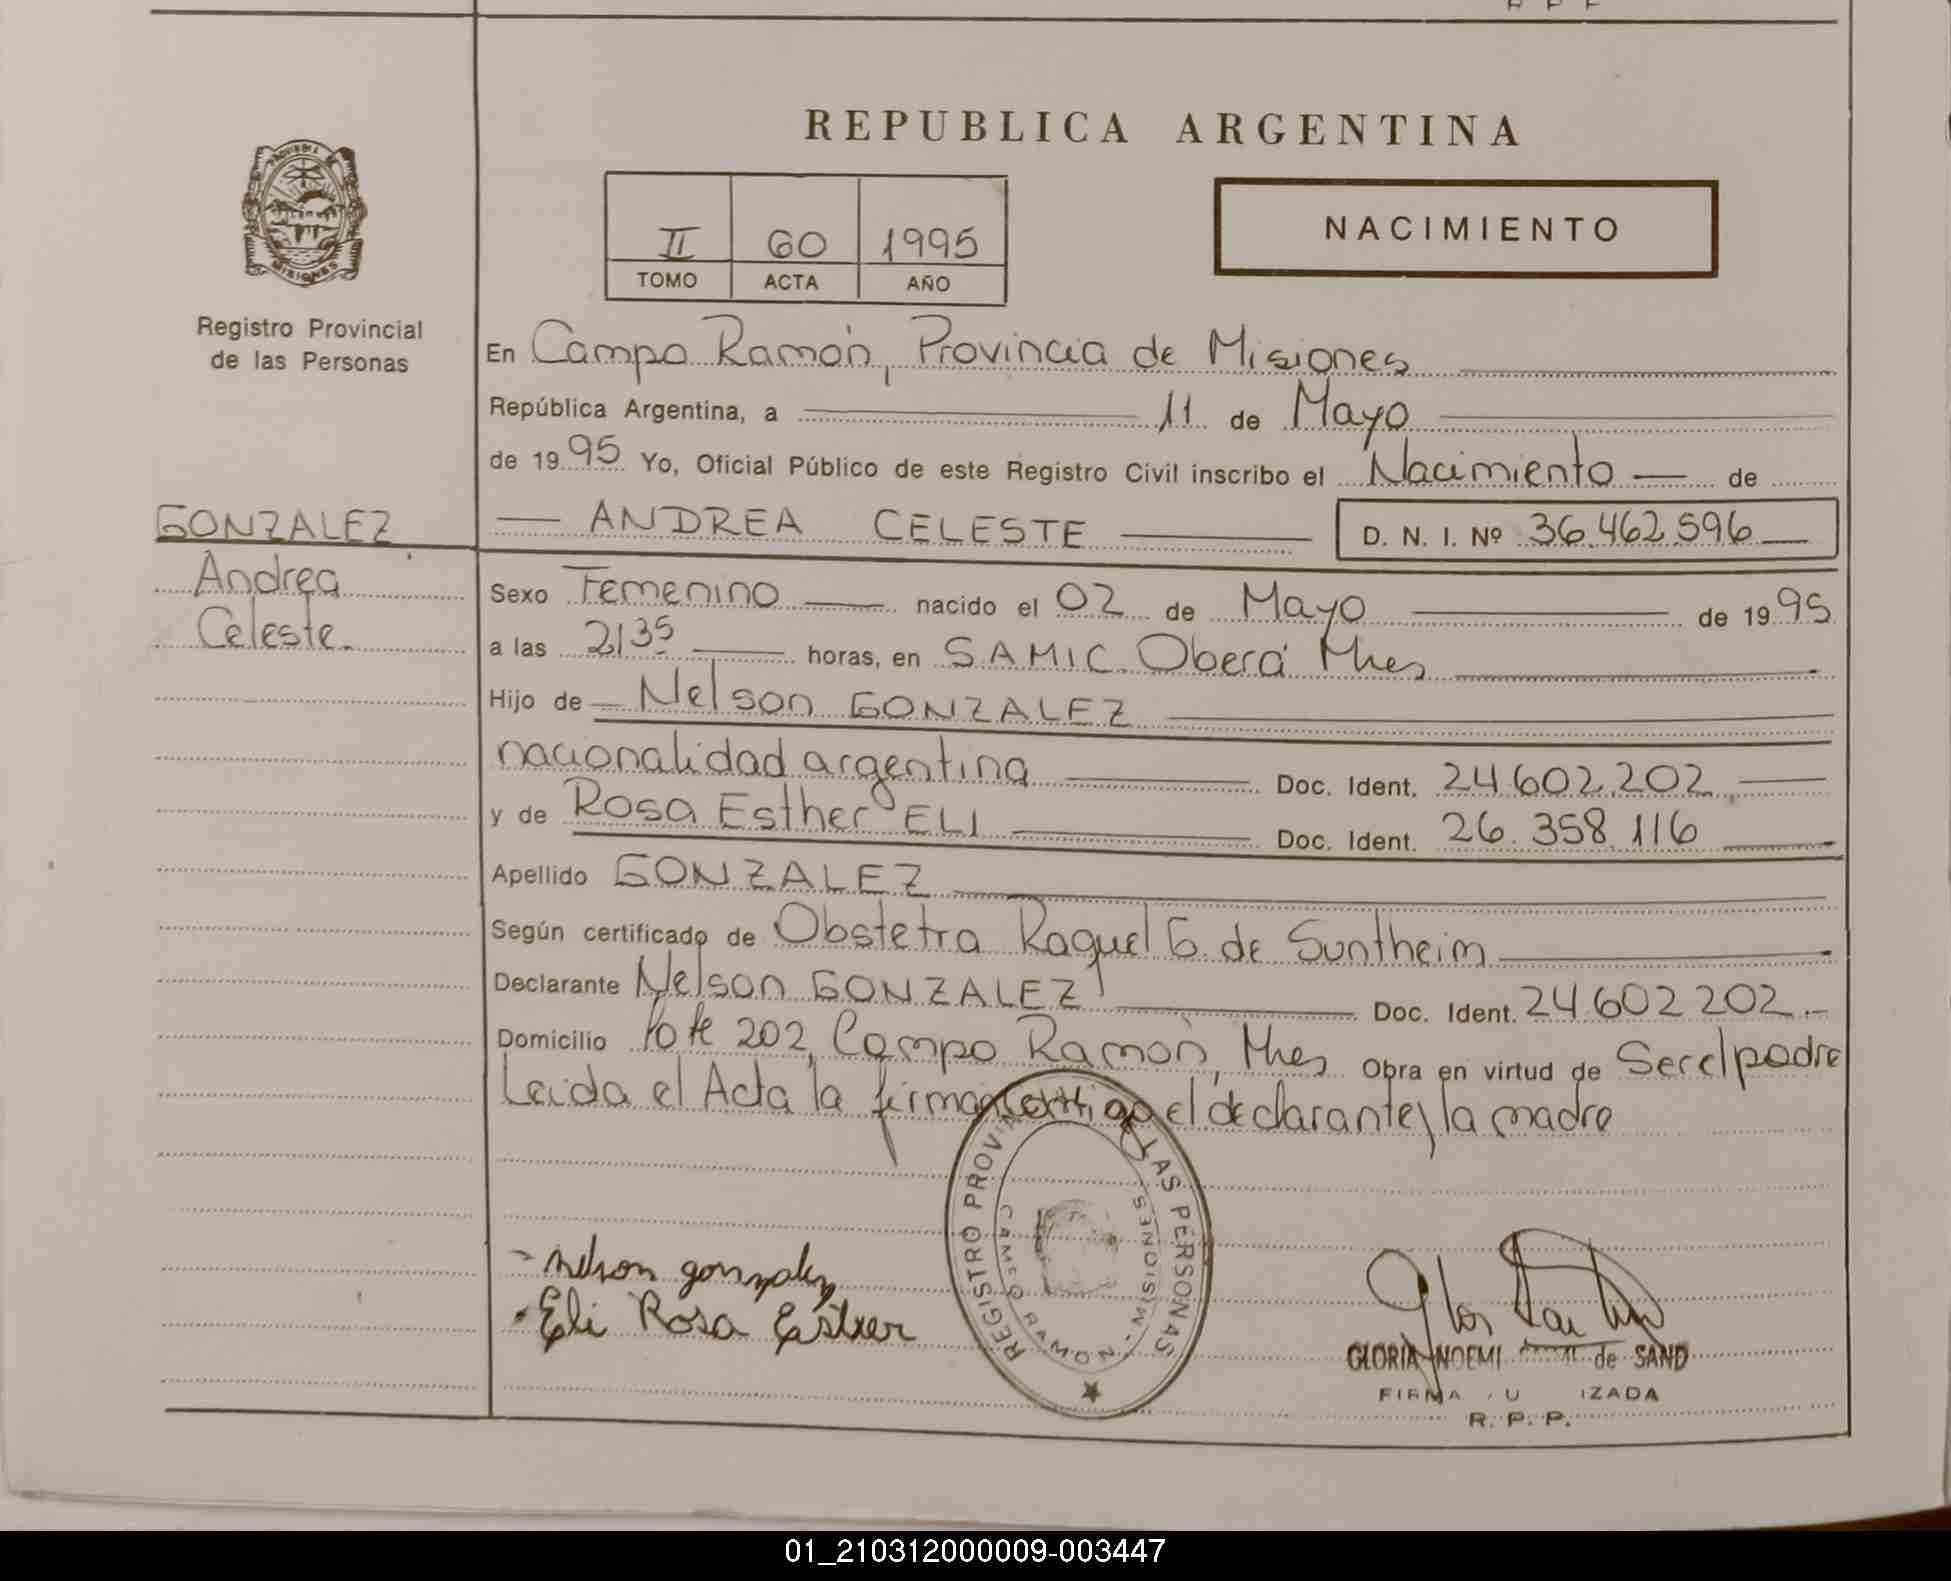 REPUBLICA ARGENTINA
II 60 1995
TOMO ACTA AÑO
NACIMIENTO
PROVINCIA DE
MISIONES
Registro Provincial
de las Personas
GONZALEZ
Andrea
Celeste.
En Campo Ramón, Provincia de Misiones
República Argentina, a 11 de Mayo
de 1995 Yo, Oficial Público de este Registro Civil inscribo el Nacimiento de
ANDREA CELESTE D. N. I. Nº 36.462.596
Sexo Femenino nacido el 02 de Mayo de 1995
a las 2135 horas, en SAMIC. Oberá Mnes
Hijo de Nelson GONZALEZ
nacionalidad argentina Doc. Ident. 24.602.202.
y de Rosa Esther ELI Doc. Ident. 26.358.116
Apellido GONZALEZ
Según certificado de Obstetra Raquel G. de Suntheim
Declarante Nelson GONZALEZ Doc. Ident. 24.602.202.-
Domicilio lote 202, Campo Ramón, Mnes Obra en virtud de Ser el padre
Leida el Acta la firman el declarante y la madre
nelson gonzalez
Eli Rosa Esther
REGISTRO LAS PERSONAS
CAMPO RAMON - MISIONES
GLORIA NOEMI de SAND
FIRMA
R. P. P.
01_210312000009-003447